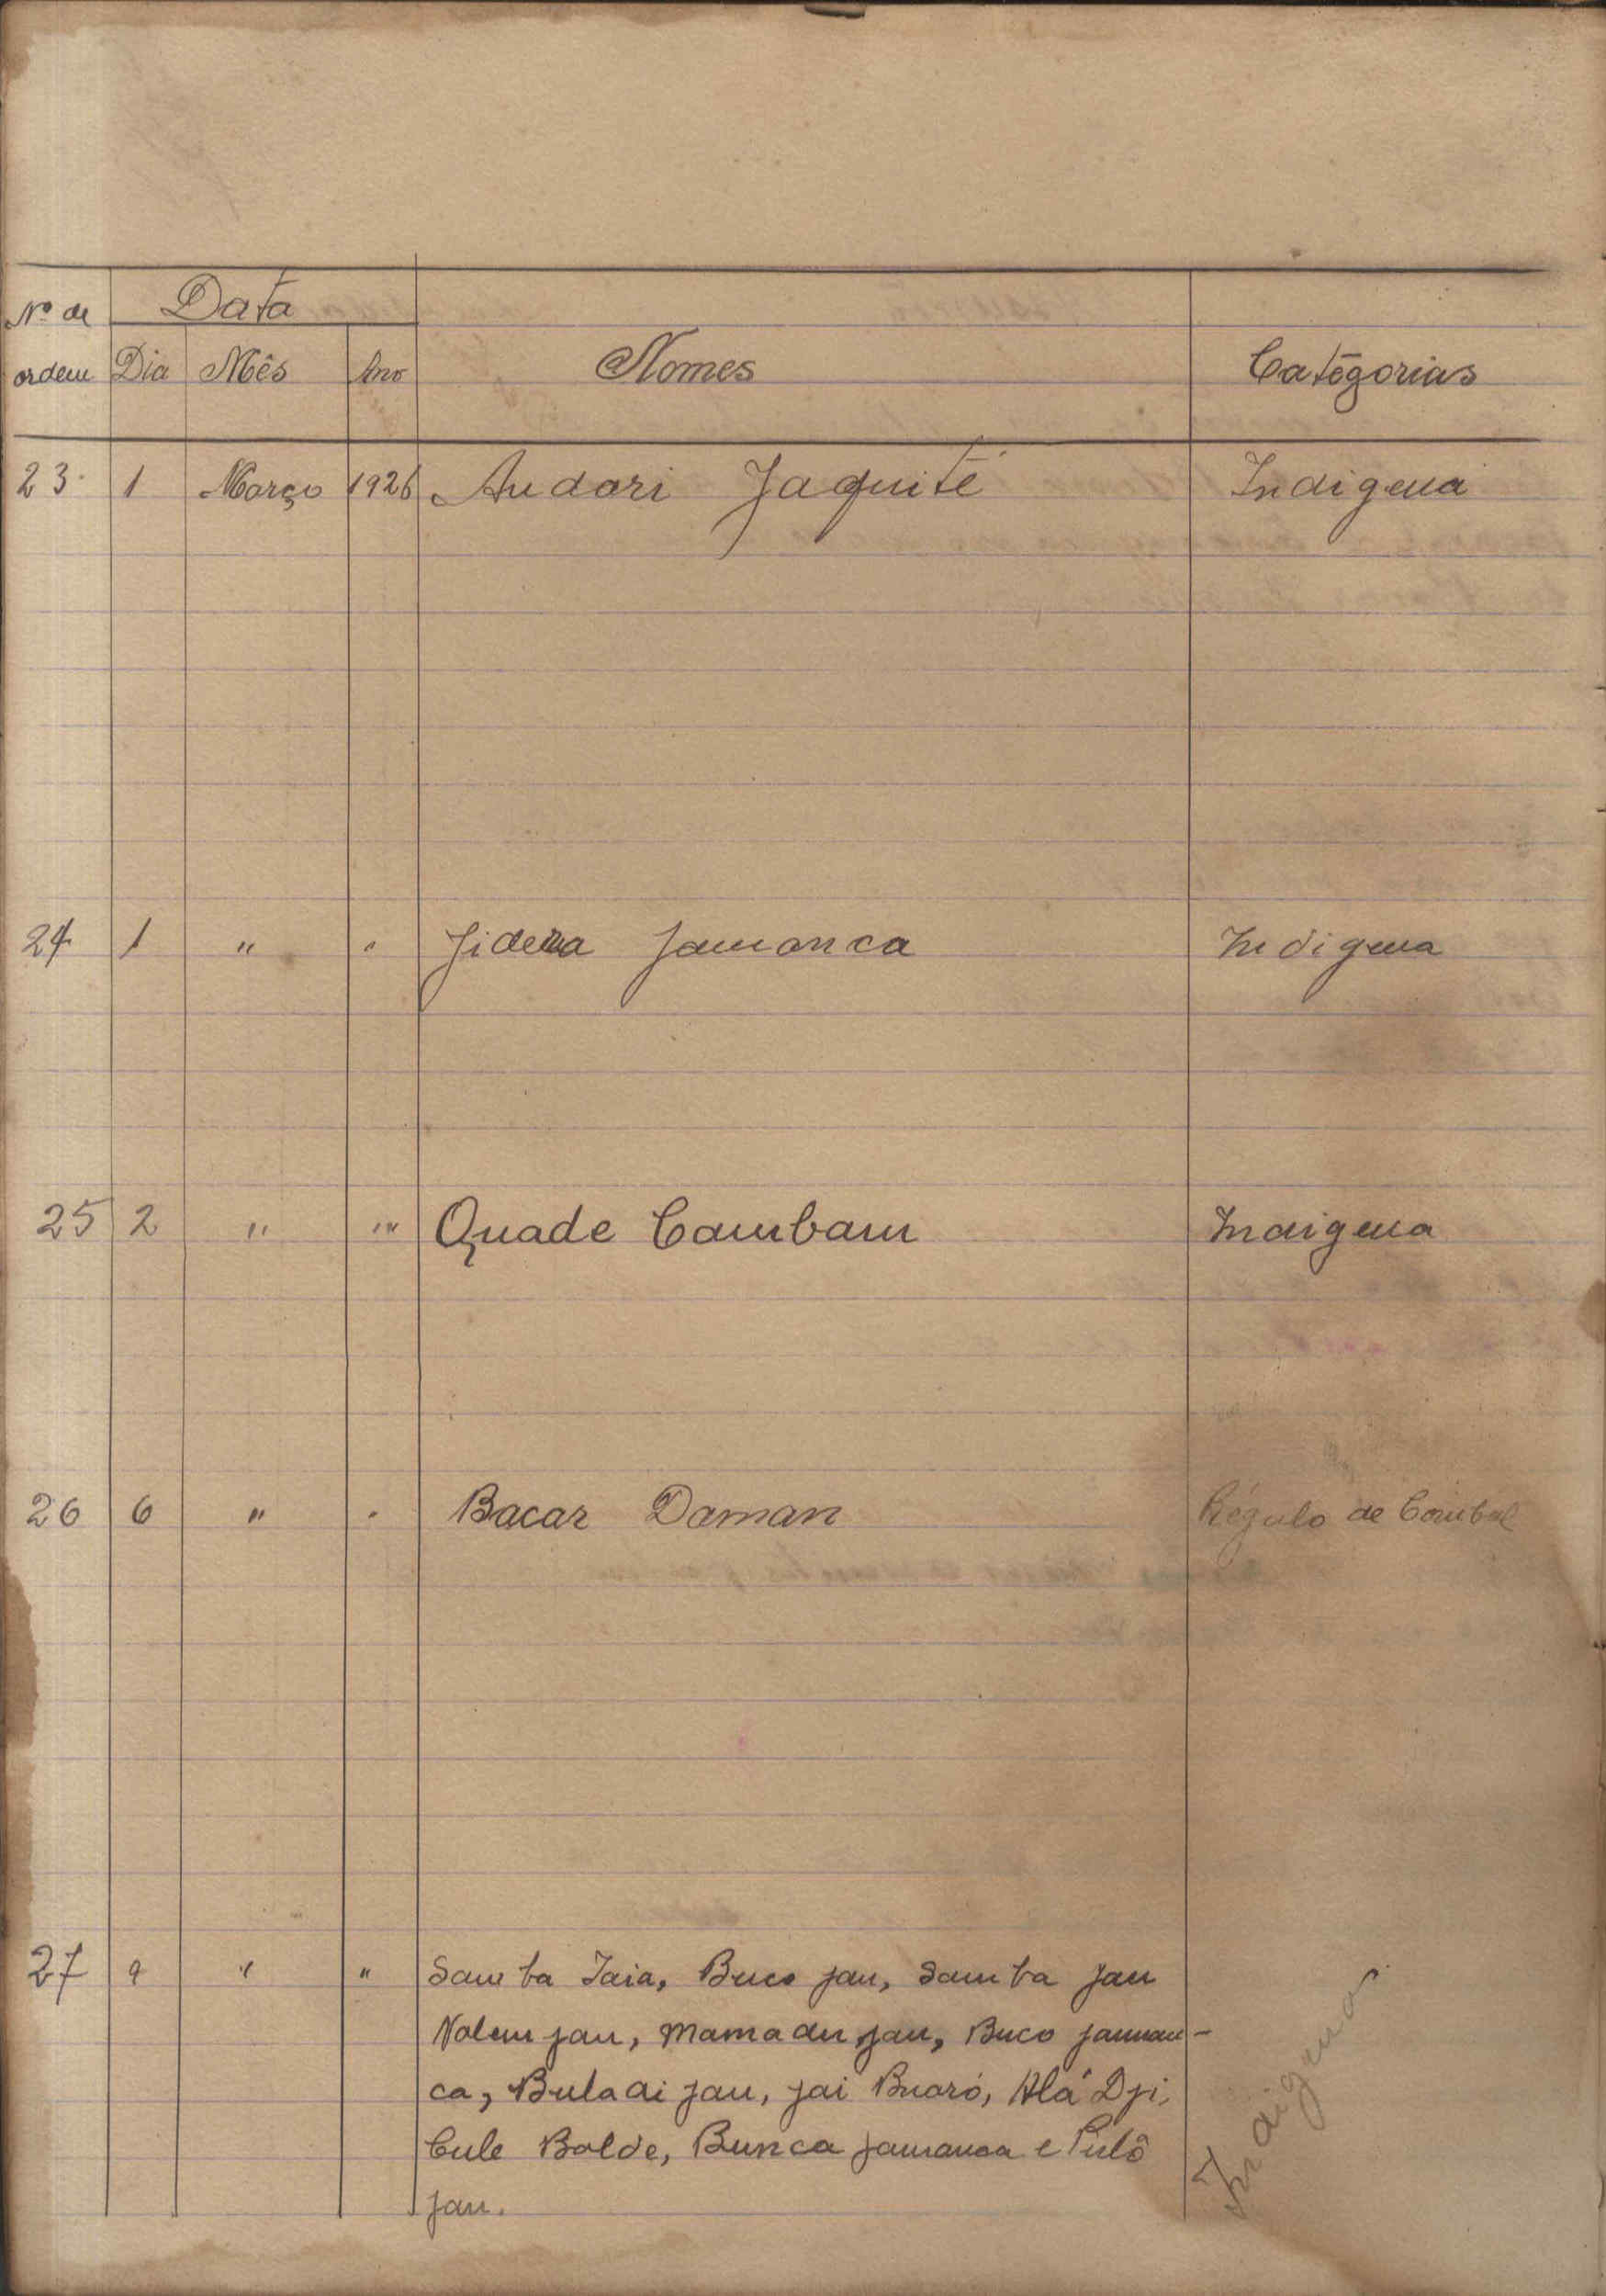 Nº de Data
ordem Dia Mês Ano Nomes Categorias
23 1 Março 1926 Audari Jaquité Indigena
24 1 " " Jidera Jamanca Indigena
25 2 " " Quade Cambam Indigena
26 6 " " Bacar Daman Régulo de Cambul
27 9 " " Samba Jaia, Buco Jau, Samba Jau
Nalem Jau, Mamadu Jau, Buco Jaman-
ca, Buladi Jau, Jai Buaró, Alá Dji,
Cule Balde, Bunca Jamanca e Pulô
Jau.
Indigenas